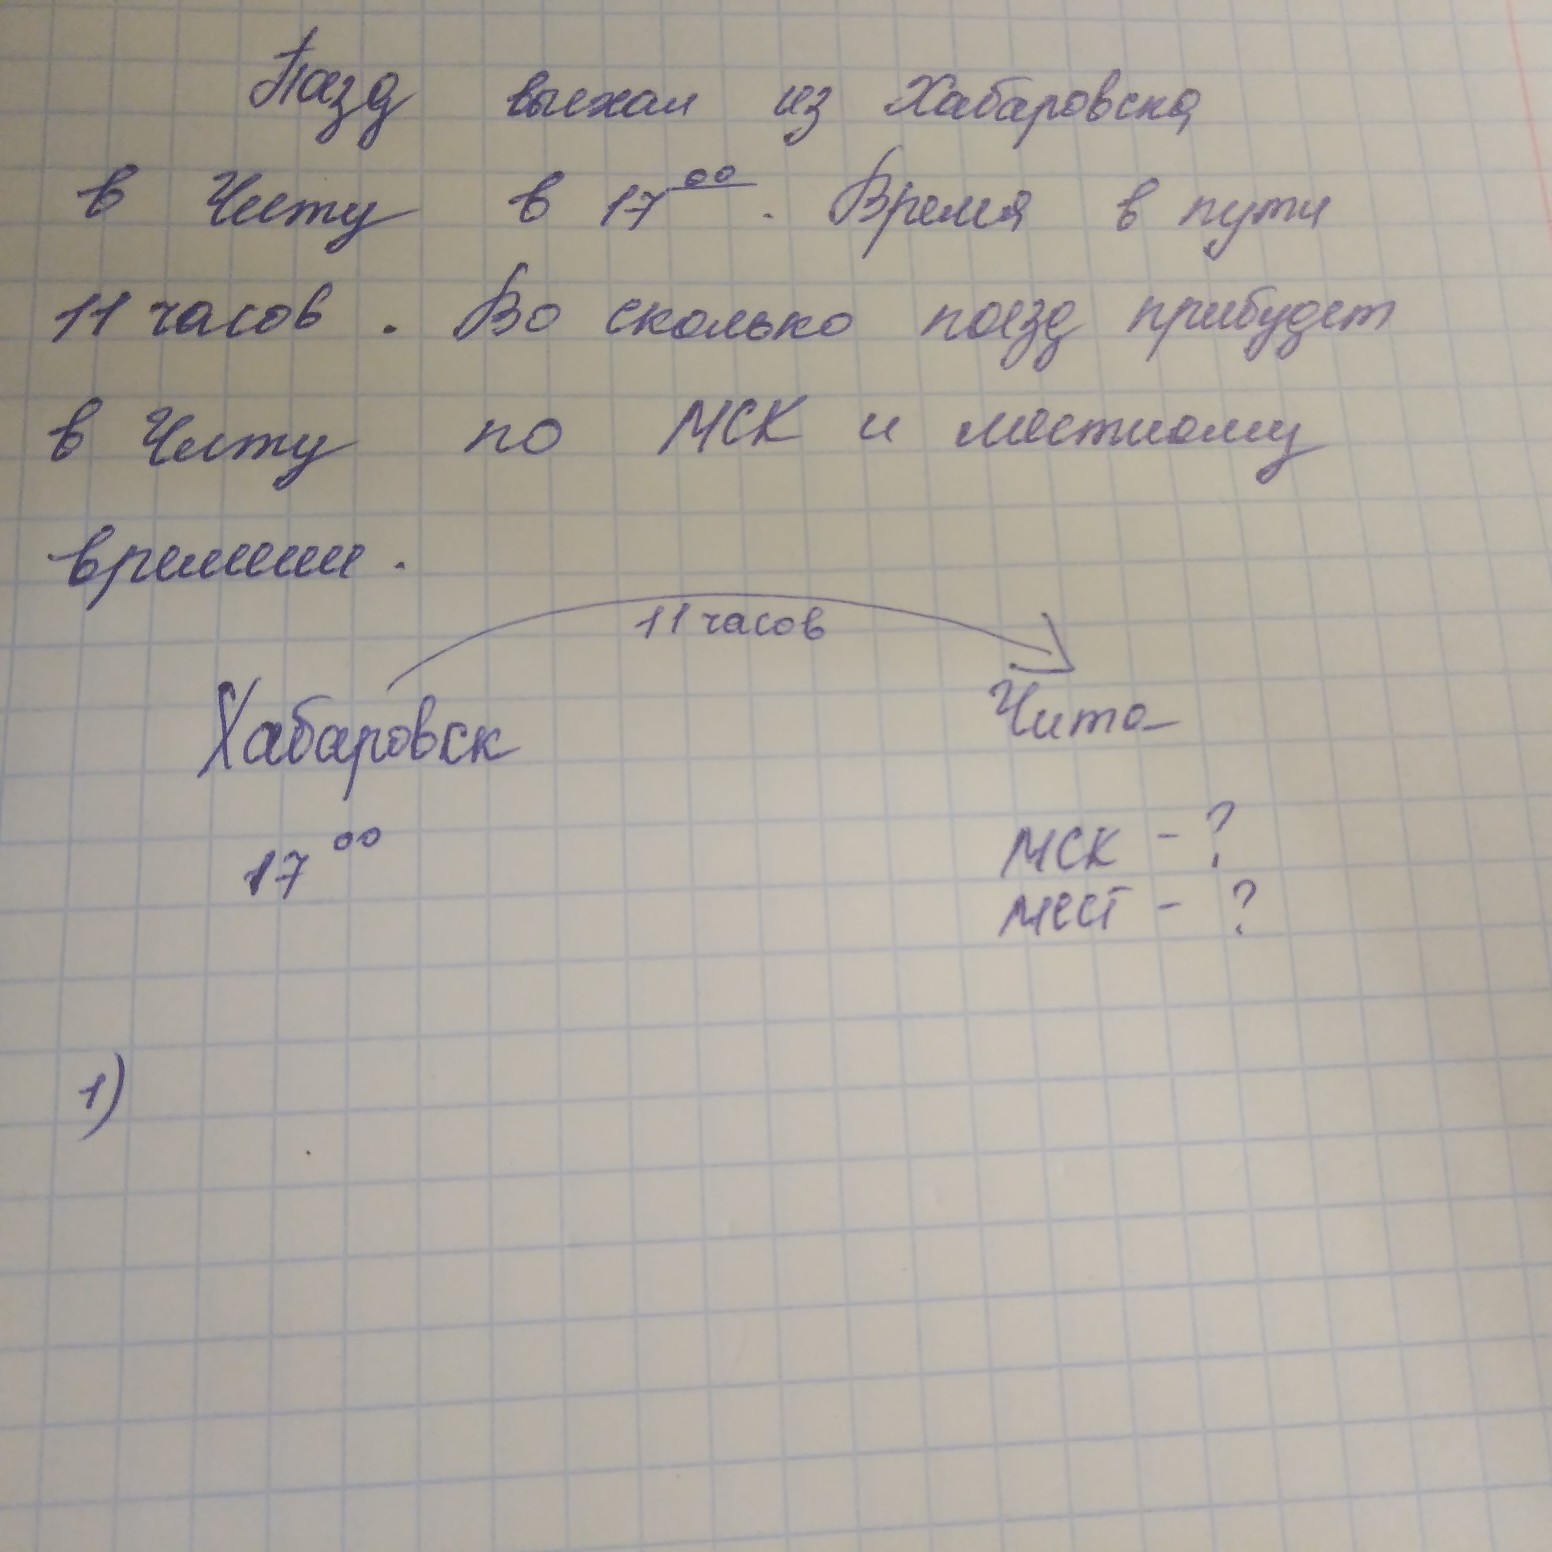 Поезд выехал из Хабаровска
в Читу в 17⁰⁰. Время в пути
11 часов. Во сколько поезд прибудет
в Читу по МСК и местному
времени.
11 часов
Хабаровск Чита
17⁰⁰ МСК - ?
МЕСТ - ?
1)